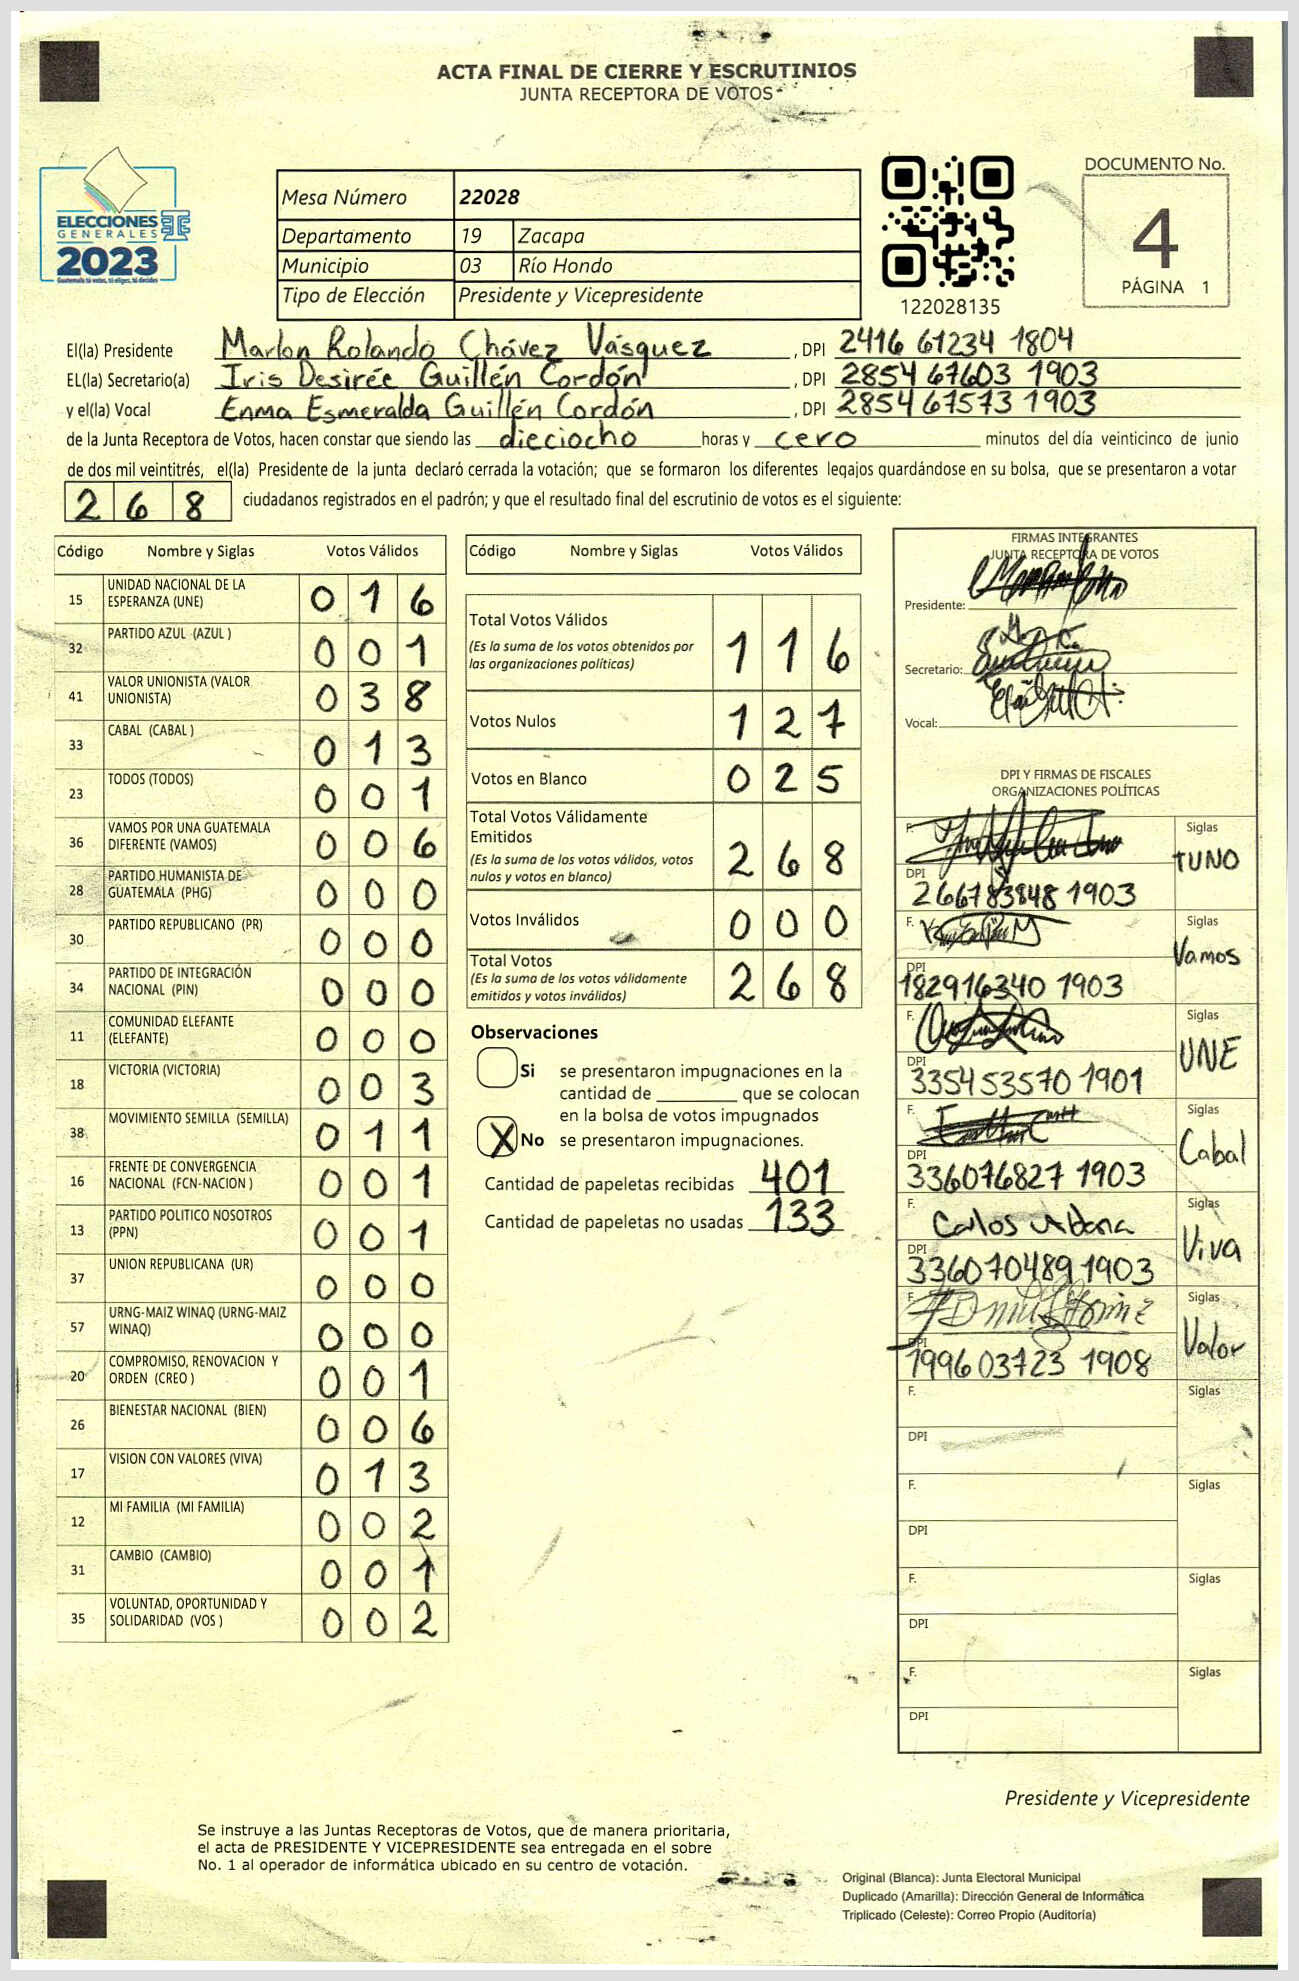 ACTA FINAL DE CIERRE Y ESCRUTINIOS
JUNTA RECEPTORA DE VOTOS
ELECCIONES
GENERALES
2023
Guatemala tú votas, tú eliges, tú decides
Mesa Número 22028
Departamento 19 Zacapa
Municipio 03 Río Hondo
Tipo de Elección Presidente y Vicepresidente
122028135
DOCUMENTO No.
4
PÁGINA 1
El(la) Presidente Marlon Rolando Chávez Vásquez , DPI 2416 61234 1804
EL(la) Secretario(a) Iris Desirée Guillén Cordón , DPI 2854 67603 1903
y el(la) Vocal Enma Esmeralda Guillén Cordón , DPI 2854 67573 1903
de la Junta Receptora de Votos, hacen constar que siendo las dieciocho horas y cero minutos del día veinticinco de junio
de dos mil veintitrés, el(la) Presidente de la junta declaró cerrada la votación; que se formaron los diferentes legajos guardándose en su bolsa, que se presentaron a votar
268 ciudadanos registrados en el padrón; y que el resultado final del escrutinio de votos es el siguiente:
Código Nombre y Siglas Votos Válidos
15 UNIDAD NACIONAL DE LA ESPERANZA (UNE) 016
32 PARTIDO AZUL (AZUL ) 001
41 VALOR UNIONISTA (VALOR UNIONISTA) 038
33 CABAL (CABAL ) 013
23 TODOS (TODOS) 001
36 VAMOS POR UNA GUATEMALA DIFERENTE (VAMOS) 006
28 PARTIDO HUMANISTA DE GUATEMALA (PHG) 000
30 PARTIDO REPUBLICANO (PR) 000
34 PARTIDO DE INTEGRACIÓN NACIONAL (PIN) 000
11 COMUNIDAD ELEFANTE (ELEFANTE) 000
18 VICTORIA (VICTORIA) 003
38 MOVIMIENTO SEMILLA (SEMILLA) 011
16 FRENTE DE CONVERGENCIA NACIONAL (FCN-NACION ) 001
13 PARTIDO POLITICO NOSOTROS (PPN) 001
37 UNION REPUBLICANA (UR) 000
57 URNG-MAIZ WINAQ (URNG-MAIZ WINAQ) 000
20 COMPROMISO, RENOVACION Y ORDEN (CREO ) 001
26 BIENESTAR NACIONAL (BIEN) 006
17 VISION CON VALORES (VIVA) 013
12 MI FAMILIA (MI FAMILIA) 002
31 CAMBIO (CAMBIO) 001
35 VOLUNTAD, OPORTUNIDAD Y SOLIDARIDAD (VOS ) 002
Código Nombre y Siglas Votos Válidos
Total Votos Válidos 116
(Es la suma de los votos obtenidos por
las organizaciones políticas)
Votos Nulos 127
Votos en Blanco 025
Total Votos Válidamente
Emitidos 268
(Es la suma de los votos válidos, votos
nulos y votos en blanco)
Votos Inválidos 000
Total Votos 268
(Es la suma de los votos válidamente
emitidos y votos inválidos)
Observaciones
Si se presentaron impugnaciones en la
cantidad de ________ que se colocan
en la bolsa de votos impugnados
X No se presentaron impugnaciones.
Cantidad de papeletas recibidas 401
Cantidad de papeletas no usadas 133
FIRMAS INTEGRANTES
JUNTA RECEPTORA DE VOTOS
Presidente:
Secretario:
Vocal:
DPI Y FIRMAS DE FISCALES
ORGANIZACIONES POLÍTICAS
F. Siglas
TUNO
DPI 266783848 1903
F. Siglas
Vamos
DPI 182916340 1903
F. Siglas
UNE
DPI 335453570 1901
F. Siglas
Cabal
DPI 336076827 1903
F. Carlos Siglas
Viva
DPI 336070489 1903
F. Siglas
Valor
DPI 199603723 1908
F. Siglas
DPI
F. Siglas
DPI
F. Siglas
DPI
F. Siglas
DPI
Presidente y Vicepresidente
Se instruye a las Juntas Receptoras de Votos, que de manera prioritaria,
el acta de PRESIDENTE Y VICEPRESIDENTE sea entregada en el sobre
No. 1 al operador de informática ubicado en su centro de votación.
Original (Blanca): Junta Electoral Municipal
Duplicado (Amarilla): Dirección General de Informática
Triplicado (Celeste): Correo Propio (Auditoría)